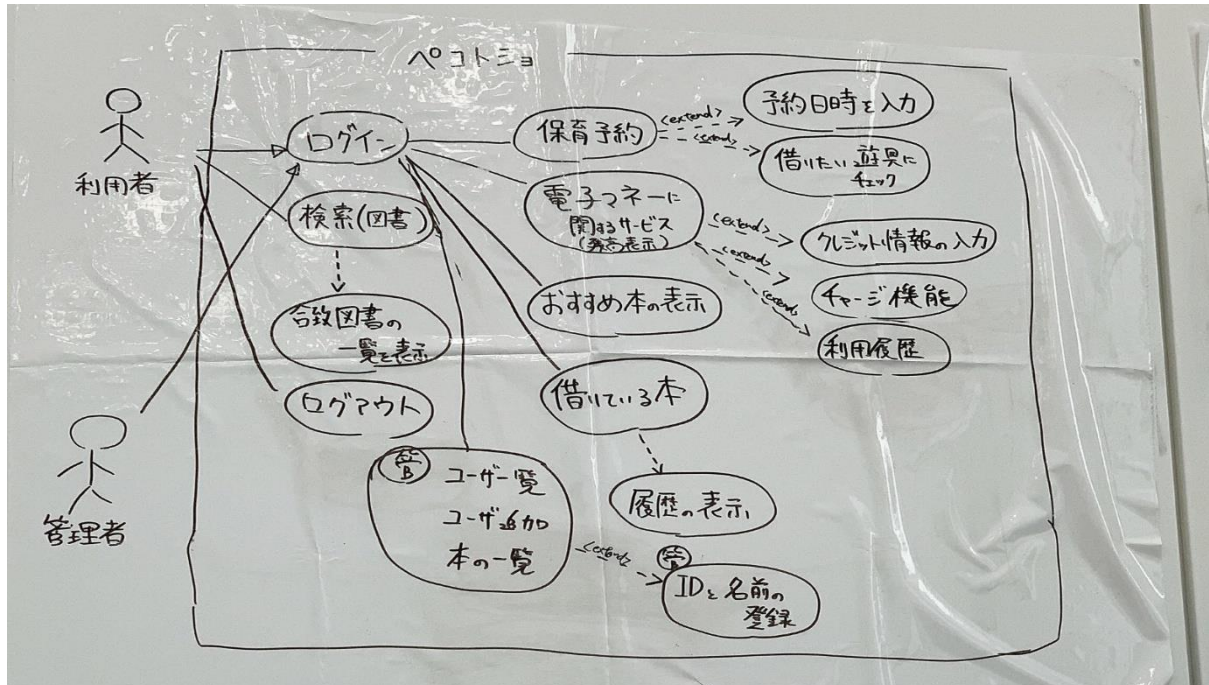 ペコトショ
利用者
ログイン
検索(図書)
合致図書の
一覧を表示
ログアウト
管理者
保育予約
<extend>
<extend>
予約日時を入力
借りたい遊具に
チェック
電子マネーに
関するサービス
(残高表示)
<extend>
<extend>
<extend>
クレジット情報の入力
チャージ機能
利用履歴
おすすめ本の表示
借りている本
履歴の表示
管
ユーザ一覧
ユーザ追加
本の一覧
<extend>
管
IDと名前の
登録